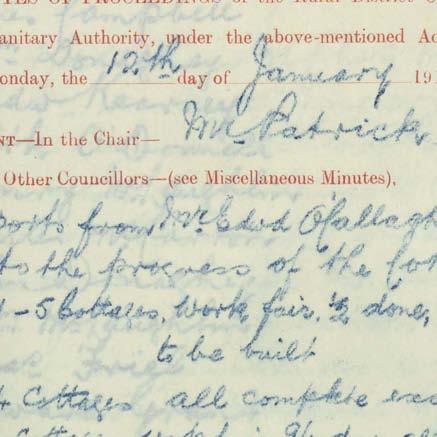 OF PROCEEDINGS of the Rural District
anitary Authority, under the above-mentioned Ac
onday, the 12th day of January 19
NT—In the Chair— Mr Patrick
Other Councillors—(see Miscellaneous Minutes),
ports from Mr Edwd O'Gallagh
to the progress of the
- 5 Cottages, work fair, ½ done,
to be built
4 Cottages all complete exc